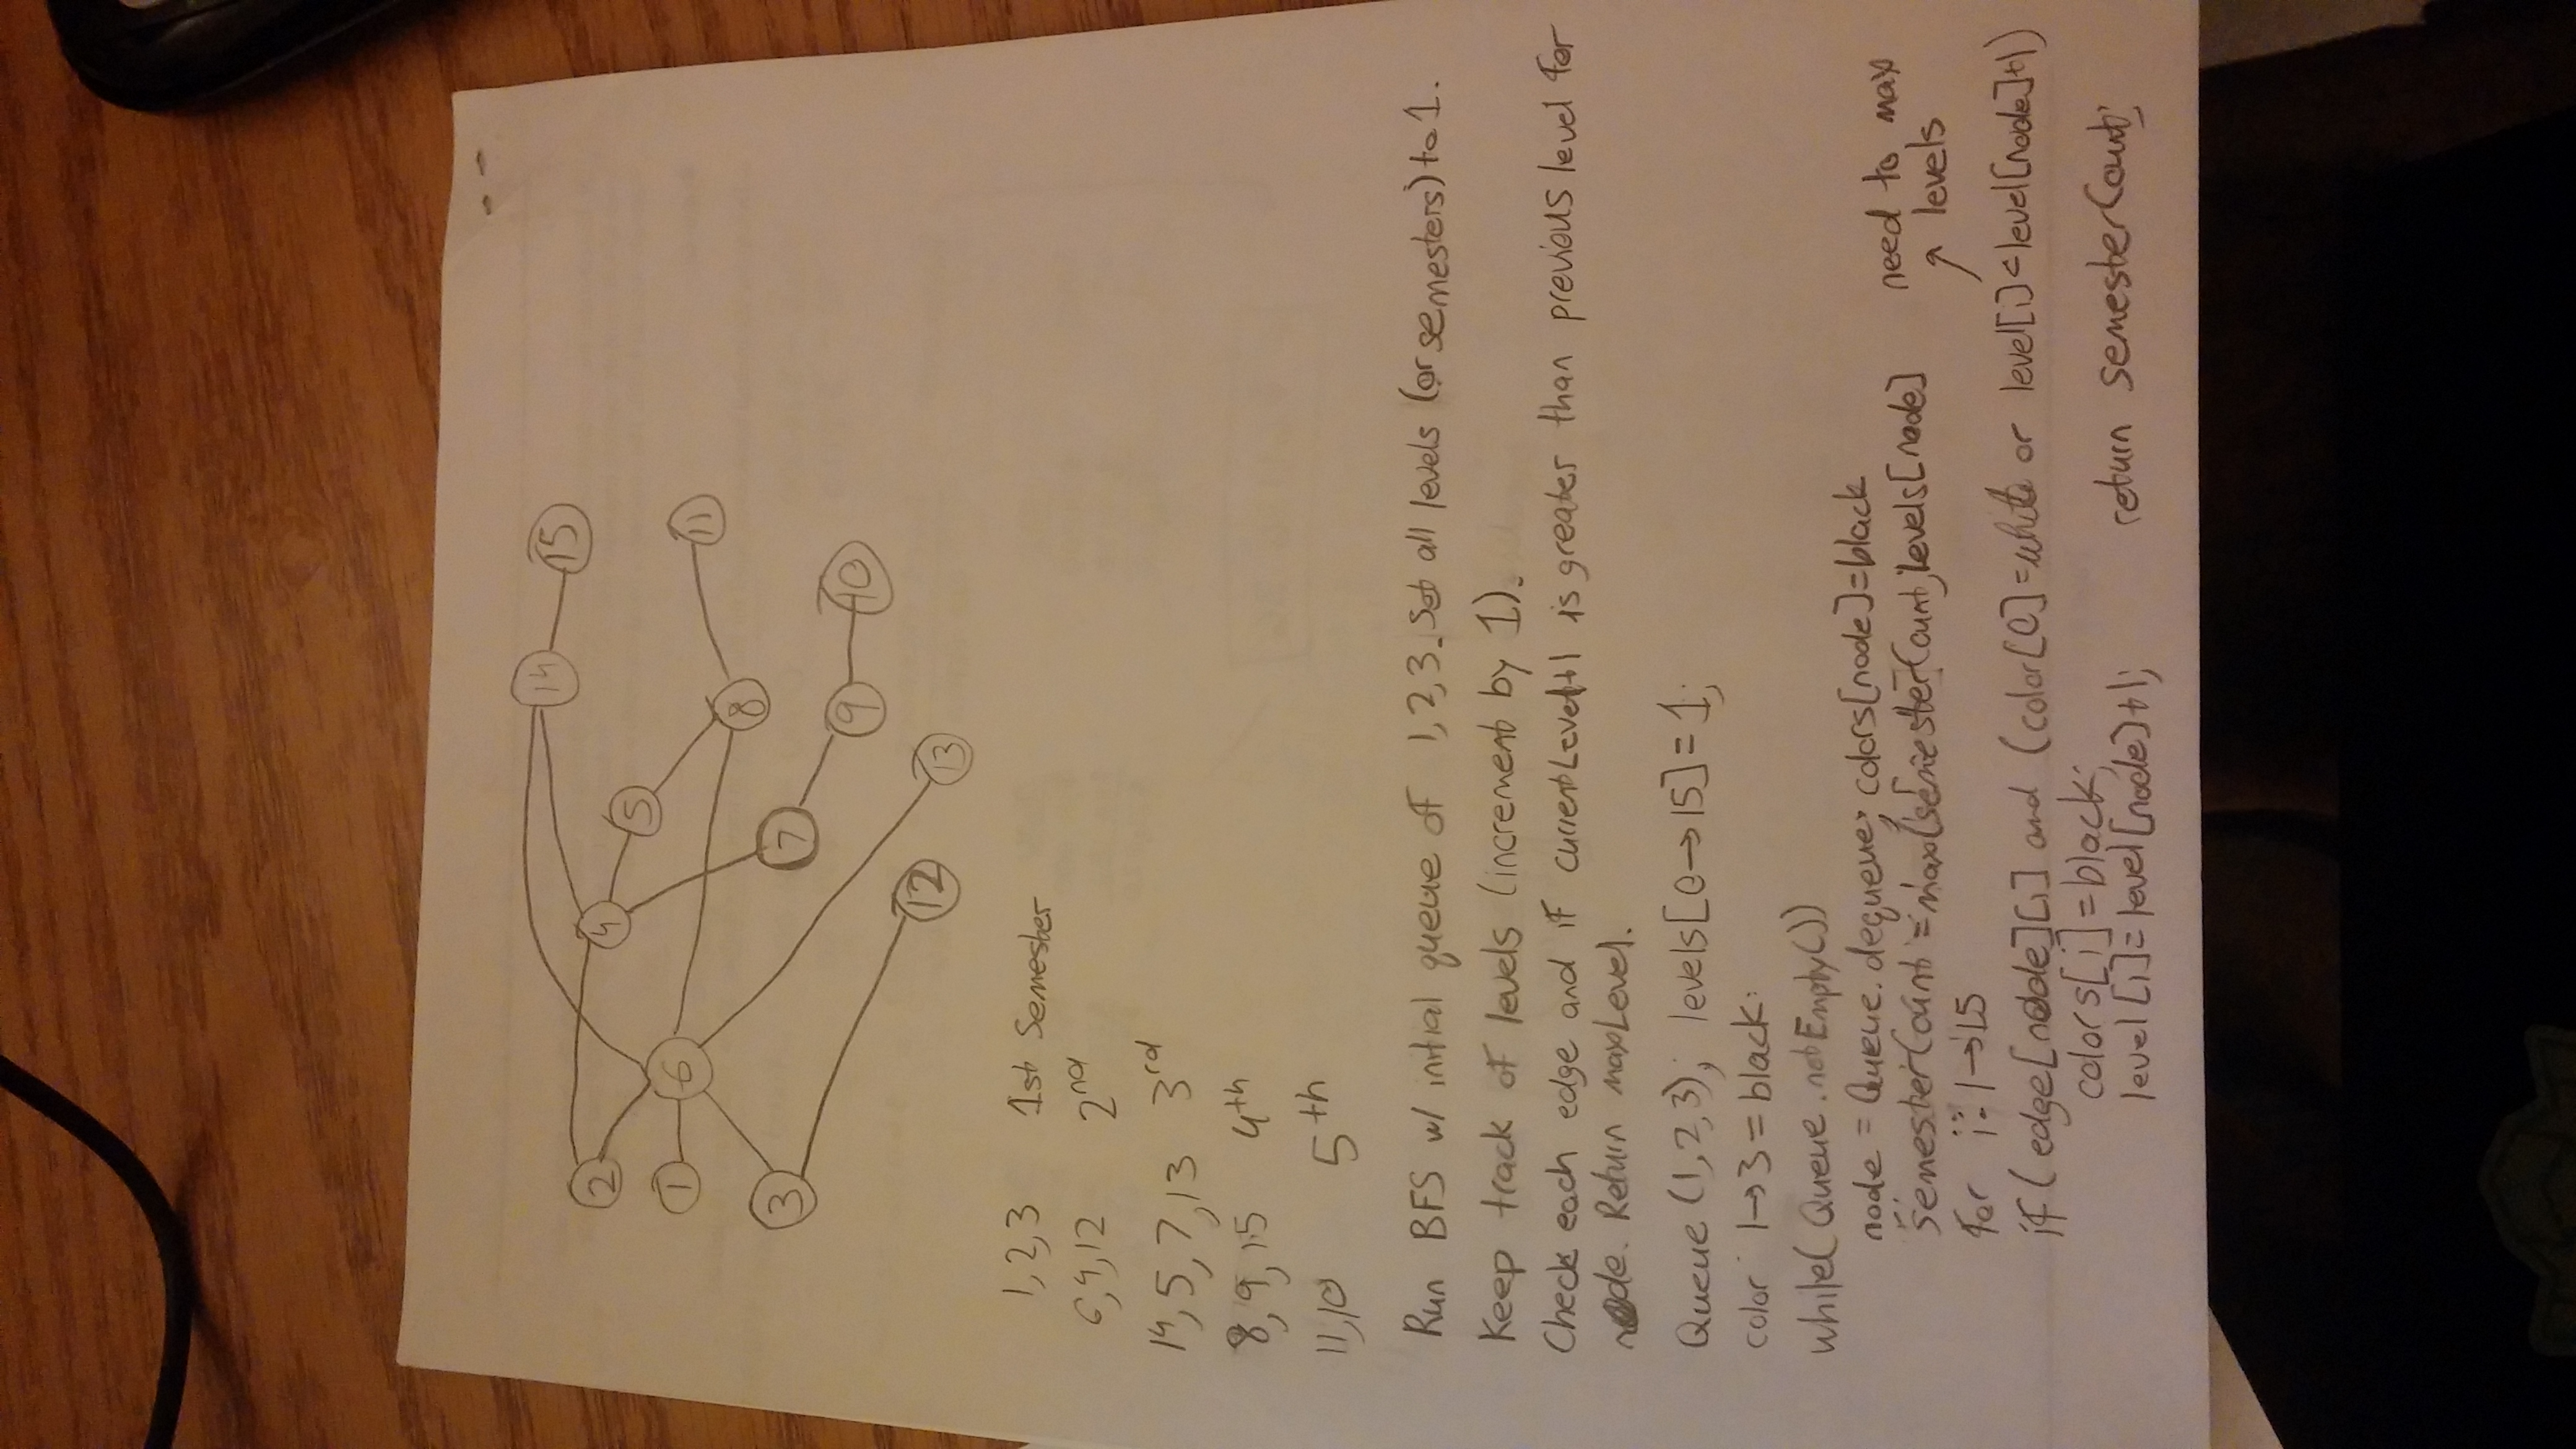 15
14
11
8
10
9
5
13
7
4
12
6
2
1
3
1,2,3 1st Semester
6,4,12 2nd
14,5,7,13 3rd
8,9,15 4th
11,10 5th
Run BFS w/ initial queue of 1,2,3. Set all levels (or semesters) to 1.
Keep track of levels (increment by 1).
Check each edge and if currentLevel+1 is greater than previous level for
node. Return maxLevel.
Queue (1,2,3); levels[0→15]=1;
color 1→3 = black;
while(Queue.notEmpty())
node = Queue.dequeue; colors[node]=black
semesterCount = max(semesterCount, levels[node]
need to max
levels
for i=1→15
if (edge[node][i] and (color[0]=white or level[i]<level[node]+1)
colors[i]=black;
level[i]=level[node]+1;
return semesterCount;